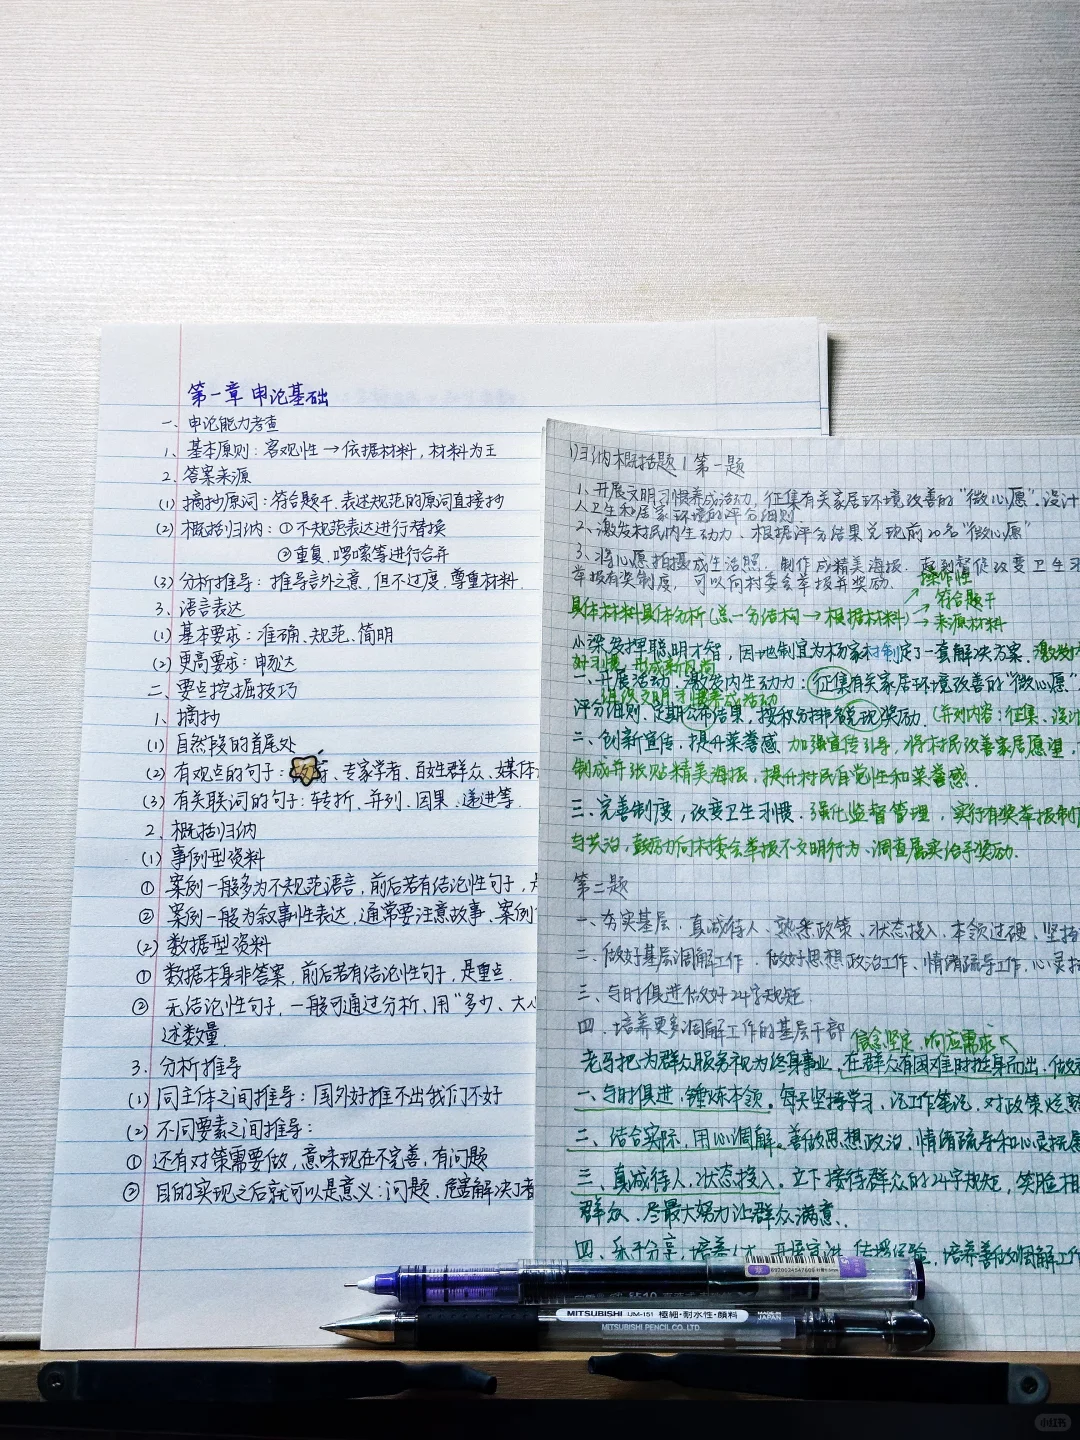 第一章 申论基础
一、申论能力考查
1、基本原则：客观性→依据材料，材料为王
2、答案来源
(1) 摘抄原词：符合题干、表述规范的原词直接抄
(2) 概括归纳：①不规范表达进行替换
②重复、啰嗦等进行合并
(3) 分析推导：推导言外之意，但不过度，尊重材料.
3、语言表达
(1) 基本要求：准确、规范、简明
(2) 更高要求：申畅达
二、要点挖掘技巧
1、摘抄
(1) 自然段的首尾处
(2) 有观点的句子：、专家学者、百姓群众、媒体
(3) 有关联词的句子：转折、并列、因果、递进等.
2、概括归纳
(1) 事例型资料
① 案例一般多为不规范语言，前后若有结论性句子，
② 案例一般为叙事性表达，通常要注意故事、案例
(2) 数据型资料
① 数据本身非答案，前后若有结论性句子，是重点.
② 无结论性句子，一般可通过分析、用“多少、大
述数量.
3、分析推导
(1) 同主体之间推导：国外好推不出我们不好
(2) 不同要素之间推导：
① 还有对策需要做，意味现在不完善，有问题
② 目的实现之后就可以是意义：问题、危害解决了
归纳概括题 1 第一题
1、开展文明习惯养成活动，征集有关家居环境改善的“微心愿”.设计
人卫生和居家环境的评分细则.
2、激发村民内生动力、根据评分结果兑现前20名“微心愿”
3、将心愿拍摄成生活照，制作成精美海报，起到督促改变卫生习
举报有奖制度，可以向村委会举报并奖励.
操作性
符合题干
具体材料具体分析(总—分结构→根据材料)→来源材料
小梁发挥聪明才智，因地制宜为杨家村制定了一套解决方案.激发
好习惯，形成新风尚
一、开展活动，激发内生动力：征集有关家居环境改善的“微心愿”
组织文明习惯养成活动
评分细则、定期公布结果，按积分排名兑现奖励.(并列内容：征集、设计
二、创新宣传，提升荣誉感.加强宣传引导，将村民改善家居愿望，
制成并张贴精美海报，提升村民自觉性和荣誉感.
三、完善制度，改变卫生习惯.强化监督管理，实行有奖举报制
与共治，鼓励向村委会举报不文明行为、调查属实给予奖励.
第二题
一、夯实基层、真诚待人、熟悉政策、状态投入、本领过硬、坚持
二、做好基层调解工作，做好思想政治工作、情绪疏导工作，心灵
三、与时俱进做好24字规矩.
四、培养更多调解工作的基层干部
信念坚定，响应需求
老马把为群众服务视为终身事业，在群众有困难时挺身而出，做
一、与时俱进，锤炼本领。每天坚持学习、记工作笔记，对政策烂
二、结合实际，用心调解。善做思想政治，情绪疏导和心灵抚
三、真诚待人，状态投入。立下接待群众的24字规矩，笑脸
群众、尽最大努力让群众满意.
四、乐于分享，培养人才，开展宣讲，传授经验，培养善做调解工作
6920034547605
MITSUBISHI UM-151 極細・耐水性・顔料
JAPAN
MITSUBISHI PENCIL CO., LTD.
小红书